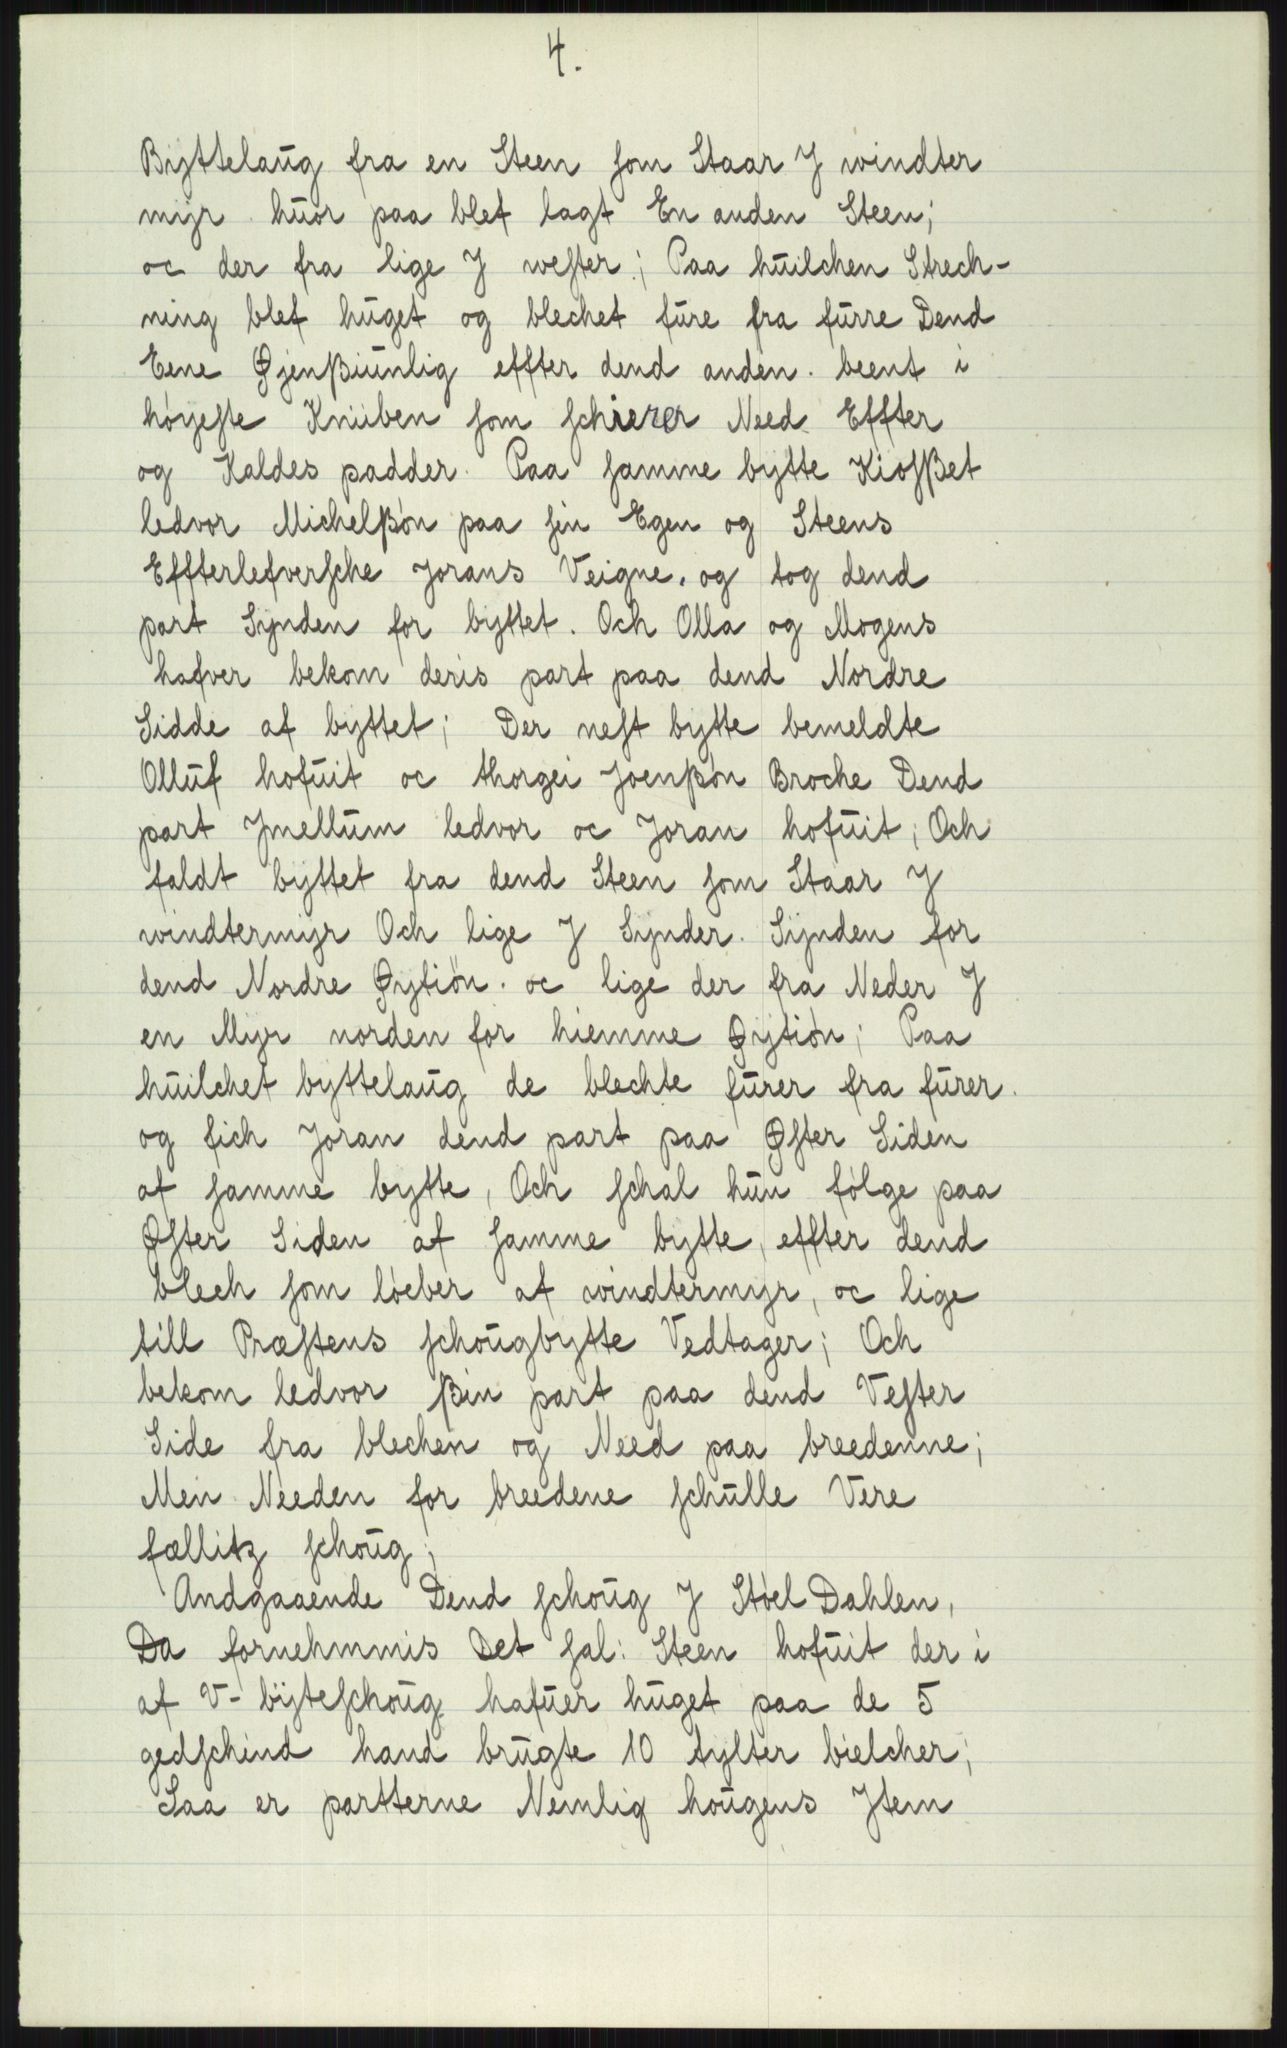 4.
Byttelaug fra en Steen som Staar J windter
myr huor paa blef lagt En anden Steen;
oc der fra lige J wester; Paa huilchen Strech-
ning blef huget og blechet fure fra furre Dend
Eene Øjenßiunlig effter dend anden. beent i
høyeste Knuben som schierer Need Effter
og Kaldes padder. Paa samme bytte Kiosßet
ledvor Michelßøn paa sin Egen og Steens
Effterlefversche Jorans Veigne. og tog dend
part Synden for byttet. Och Olla og Mogens
hafver bekom deris part paa dend Nordre
Sidde af byttet; Der nest bytte bemeldte
Olluf hofuit oc thorgei Joenßøn Broche Dend
part Jmellum ledvor oc Joran hofuit; Och
faldt byttet fra dend Steen som Staar J
windtermyr Och lige J Synder. Synden for
dend Nordre Øytiøn. oc lige der fra Neder J
en Myr norden for hiemme Øytiøn; Paa
huilchet byttelaug de blechte furer fra furer.
og fich Joran dend part paa Øster Siden
af samme bytte, Och schal hun følge paa
Øster Siden af samme bytte, effter dend
blech som løeber af windtermyr, oc lige
till Præstens schougbytte Vedtager; Och
bekom ledvor ßin part paa dend Vester
Side fra blechen og Need paa breedenne;
Men Needen for breedene schulle Vere
fællitz schoug;
Andgaaende Dend schoug J Støel Dahlen,
Da fornehmmis Det sal: Steen hofuit der i
af V-byteschoug hafuer huget paa de 5
gedschind hand brugte 10 tylter bielcher;
Saa er partterne Nemlig hougens Jtem